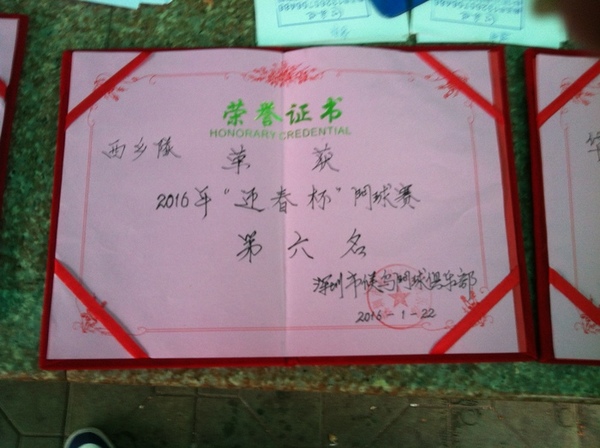 荣誉证书
HONORARY CREDENTIAL
西乡队
荣 获
2016年“迎春杯”门球赛
第六名
深圳市候鸟门球俱乐部
2016-1-22